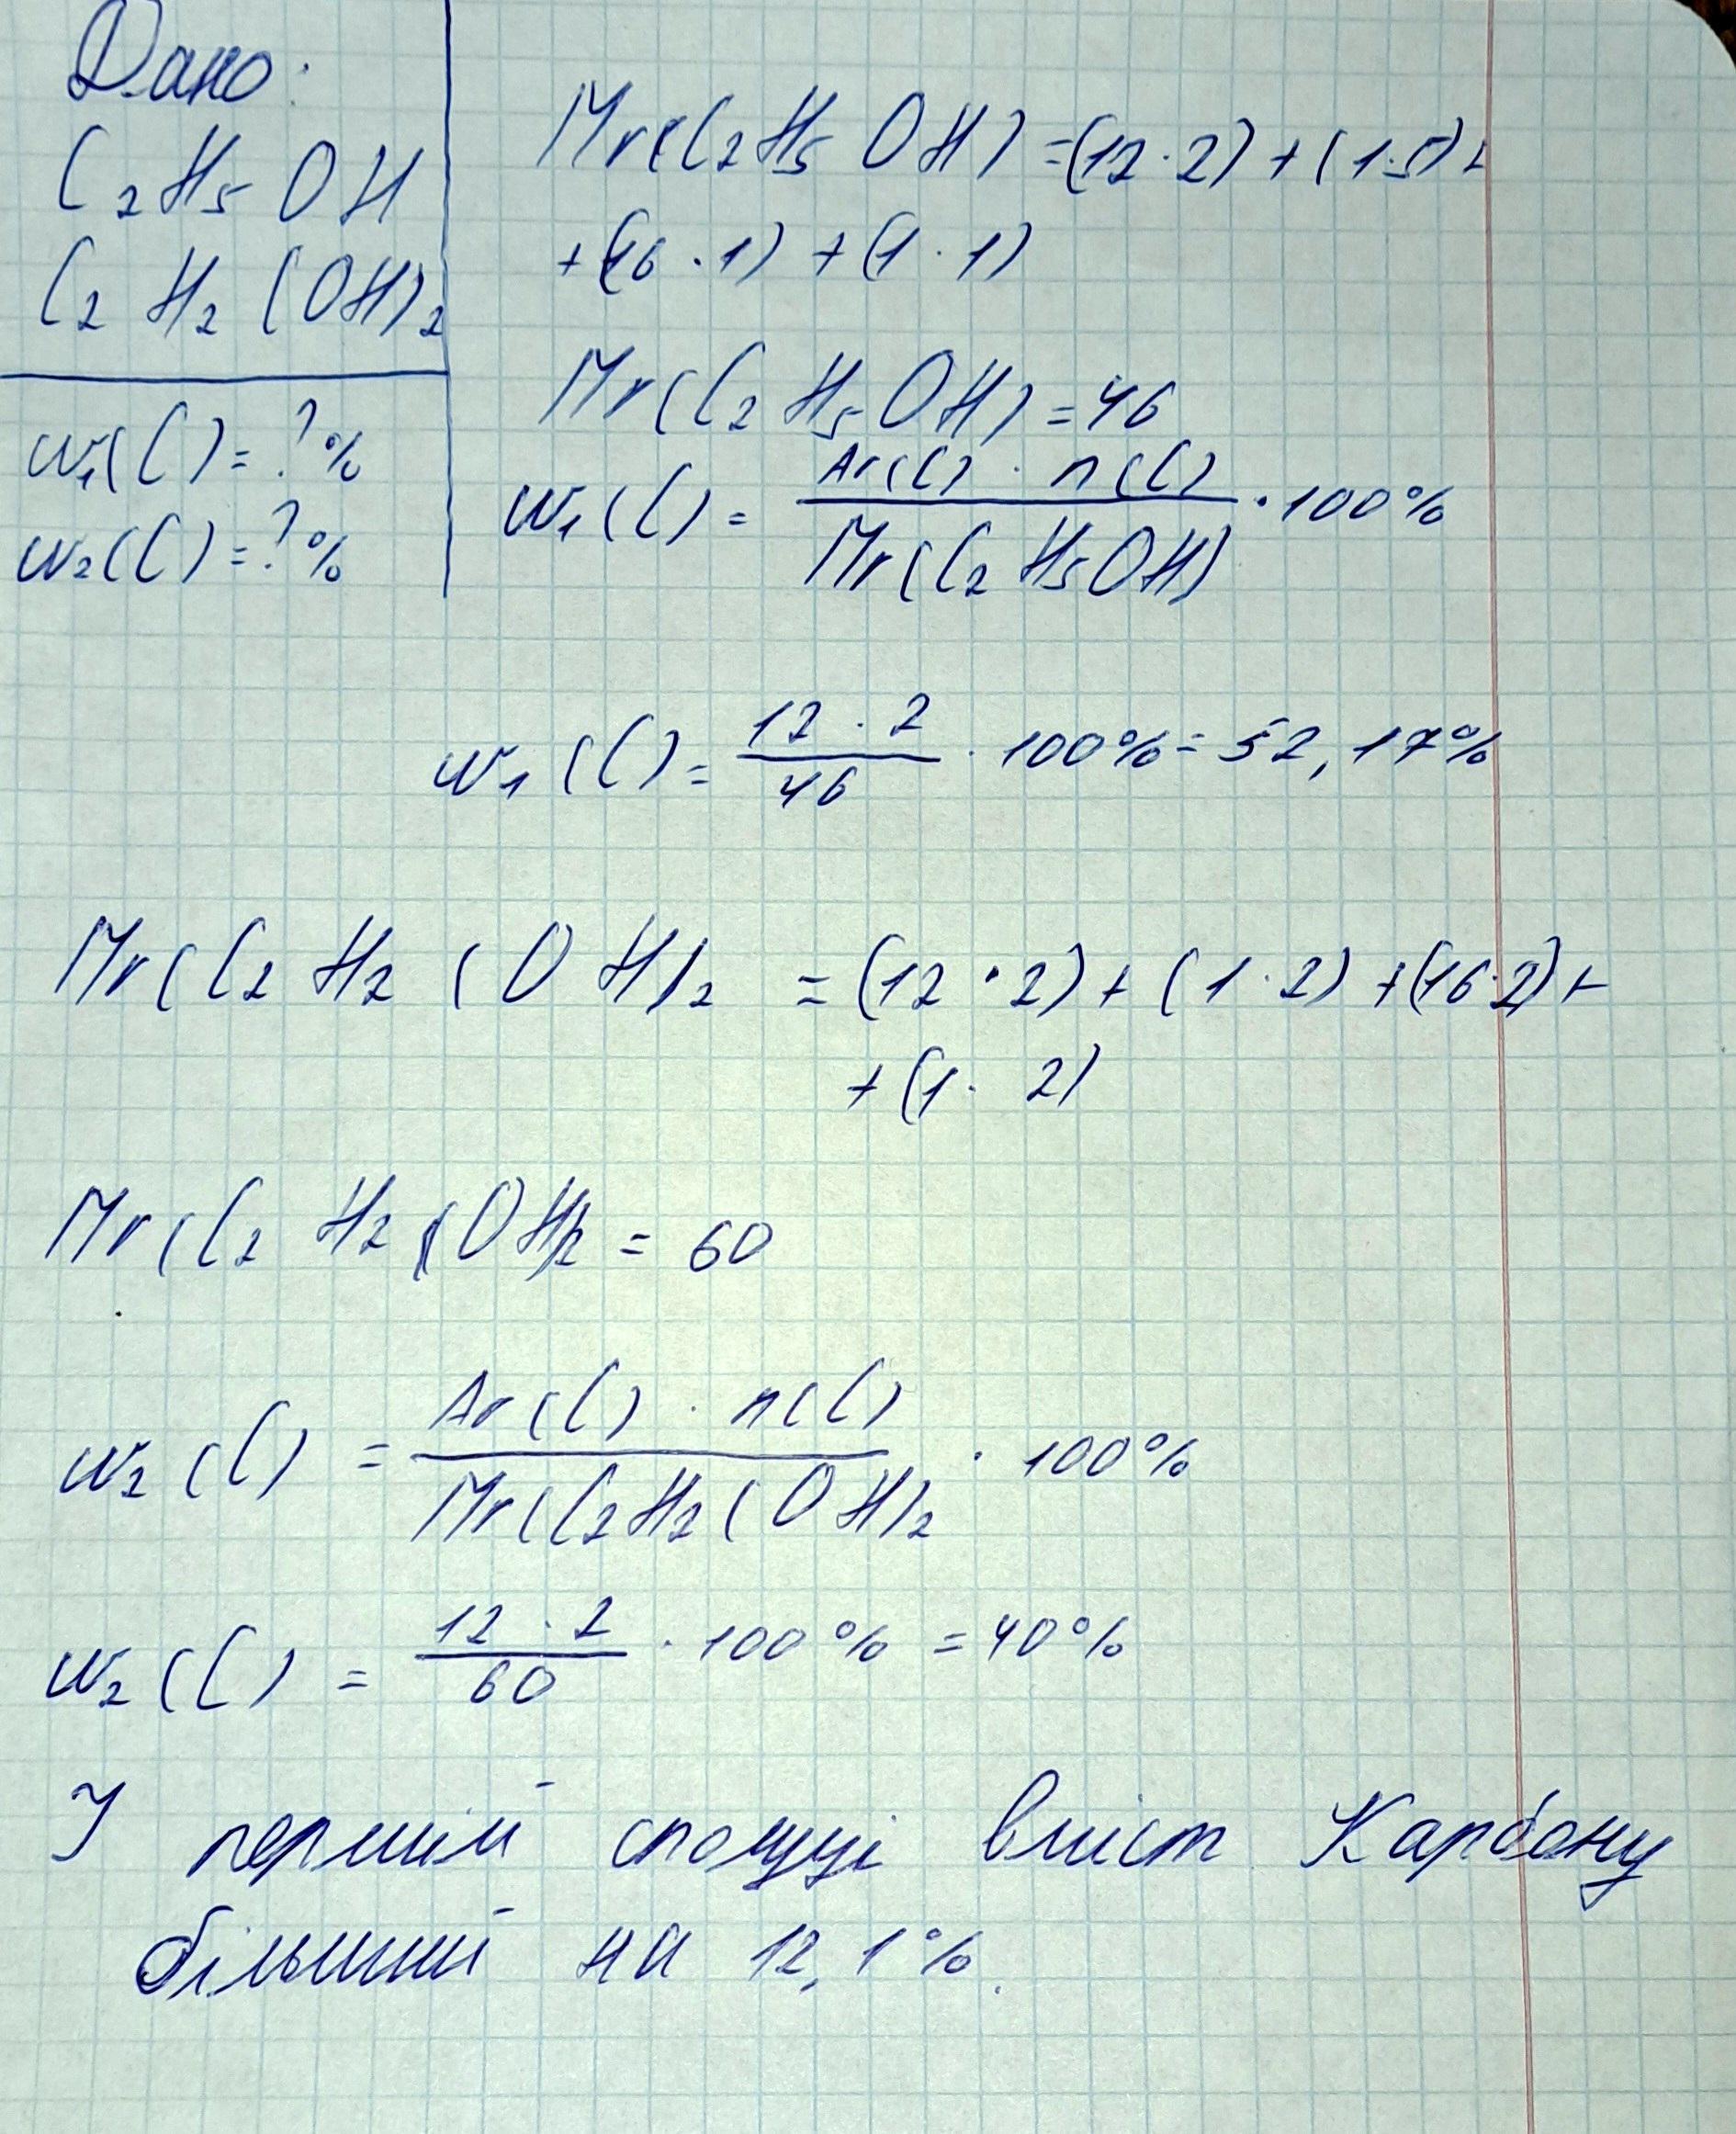 Дано:
C₂H₅OH
C₂H₂(OH)₂
w₁(C)=?%
w₂(C)=?%
Mr(C₂H₅OH)=(12·2)+(1·5)+
+(16·1)+(1·1)
Mr(C₂H₅OH)=46
w₁(C)= Ar(C)·n(C) / Mr(C₂H₅OH) ·100%
w₁(C)= 12·2 / 46 ·100%=52,17%
Mr(C₂H₂(OH)₂ =(12·2)+(1·2)+(16·2)+
+(1·2)
Mr(C₂H₂(OH)₂ = 60
w₂(C) = Ar(C)·n(C) / Mr(C₂H₂(OH)₂ ·100%
w₂(C) = 12·2 / 60 ·100% =40%
У першій сполуці вміст Карбону
більший на 12,1%.